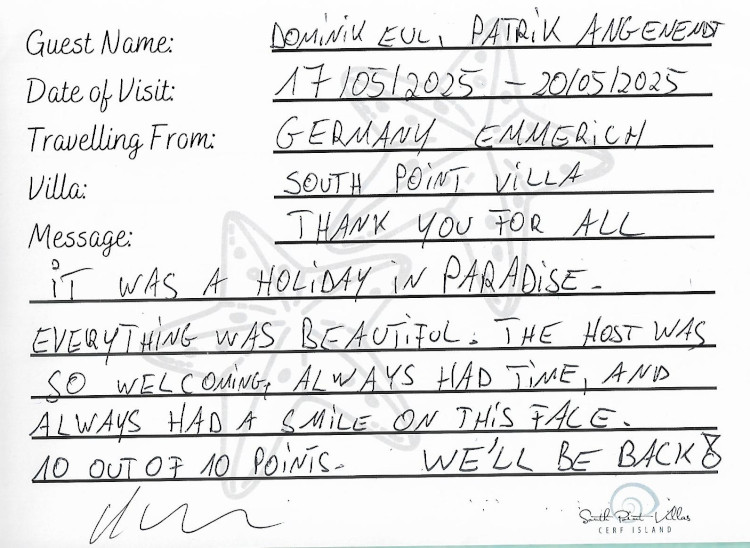 Guest Name: DOMINIK EUL, PATRIK ANGENENDT
Date of Visit: 17/05/2025 - 20/05/2025
Travelling From: GERMANY EMMERICH
Villa: SOUTH POINT VILLA
Message: THANK YOU FOR ALL
iT WAS A HOLIDAY iN PARADiSE.
EVERYTHING WAS BEAUTiFUL. THE HOST WAS
SO WELCOMiNG, ALWAYS HAD TiME, AND
ALWAYS HAD A SMiLE ON THiS FACE.
10 OUT OF 10 POiNTS. WE'LL BE BACK
South Point Villas
CERF ISLAND